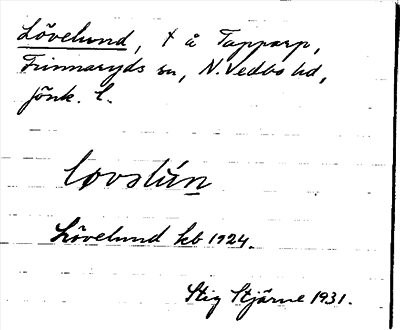 Lövelund, t å Tapparp,
Frinnaryds sn, N. Vedbo hd,
Jönk. l.
lovslún
Lövelund kb 1924.
Stig Stjärne 1931.